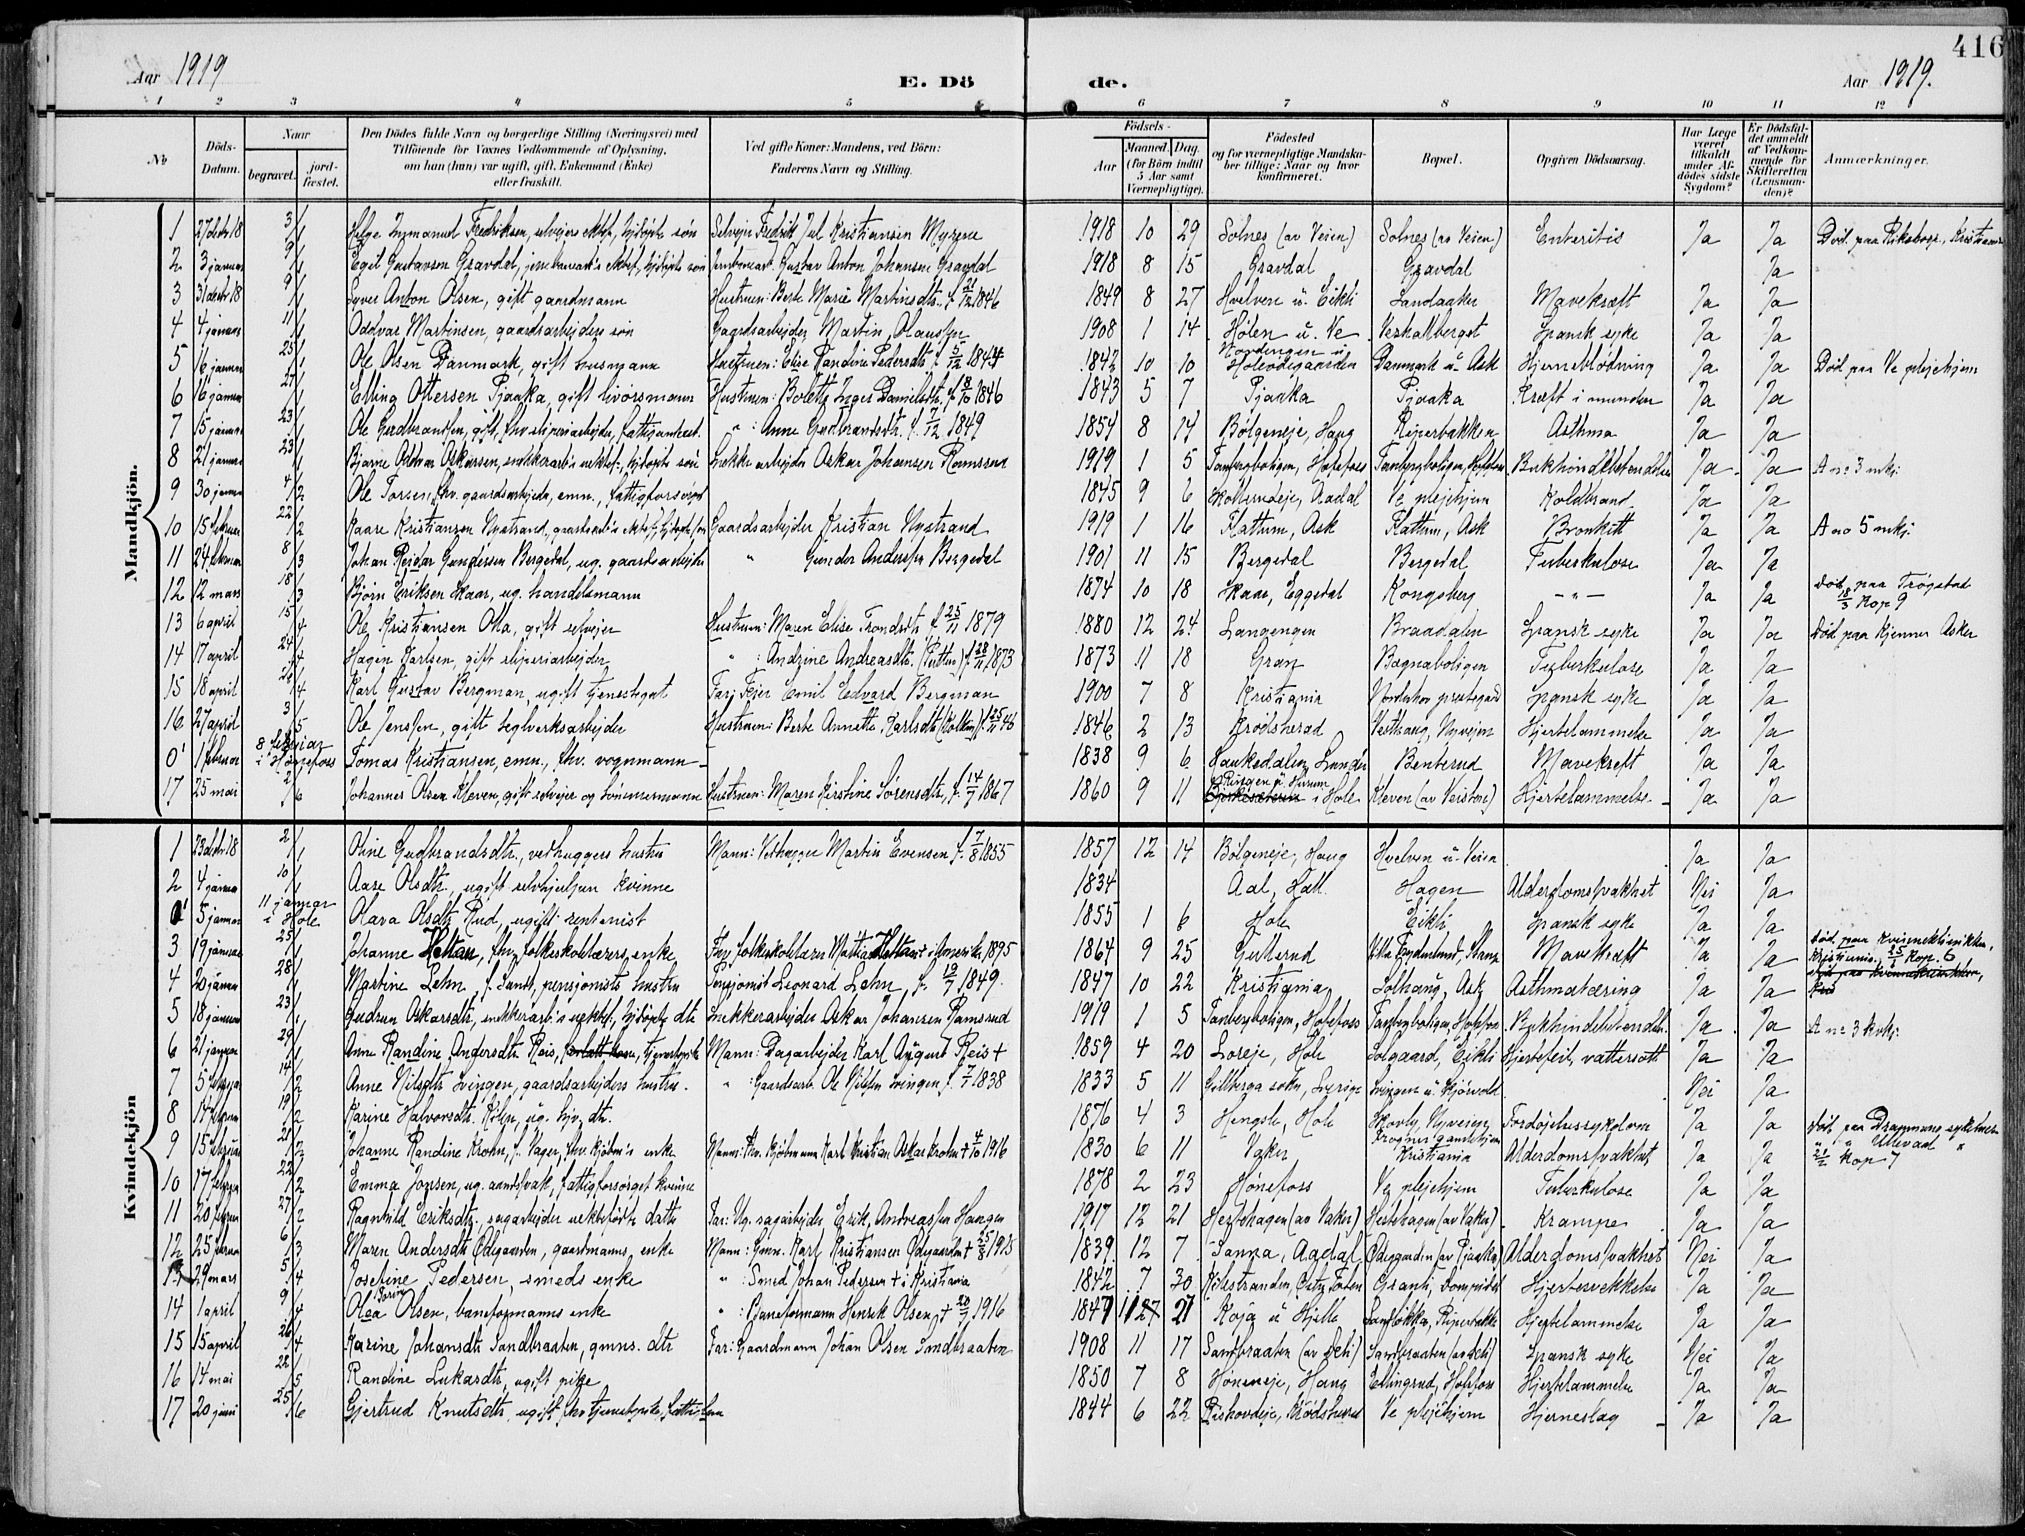 416
Aar 1919
E. Dö
de.
Aar 1919.
1 2 3 4 5 6 7 8 9 10 11 12
No
Döds-Datum.
Naar
begravet.
jord-fæstet.
Den Dödes fulde Navn og borgerlige Stilling (Næringsvei) med
Tilföiende for Voxnes Vedkommende af Oplysning,
om han (hun) var ugift, gift, Enkemand (Enke)
eller fraskilt.
Ved gifte Koner: Mandens, ved Börn:
Faderens Navn og Stilling.
Födsels-
Aar
Maaned. Dag.
(for Börn indtil
5 Aar samt
Værnepligtige).
Födested
og for værnepligtige Mandska-
ber tillige: Naar og hvor
konfirmeret.
Bopæl.
Opgiven Dödsaarsag.
Har Læge
været
tilkaldt
under Af-
dödes sidste
Sygdom?
Er Dödsfal-
det anmeldt
af Vedkom-
mende for
Skifteretten
(Lensman-
den)?
Anmærkninger.
Mandkjön.
1 27 decbr 18 3/1 Helge Ingmanuel Fredriksen, selveiers søn Selveier Fredrik Kristiansen Myrene 1918 10 29 Solnes (av Veien) Solnes (av Veien) Enteritis Ja Ja Død paa Rikshosp., Kristiania
2 3 januar 9/1 Egil Gustavsen Gravdal, søn Gustav Anton Johansen Gravdal 1918 8 15 Gravdal Gravdal Ja
3 31 decbr 18 9/1 Syver Anton Olsen, gift gaardmann Hustruen: Berte Marie Martinsdtr. f. 21/12 1846 1849 8 27 Hvelven u. Eikli Landaaker Mavekræft Ja Ja
4 4 januar 11/1 Oddvar Martinsen, gaardsarbeiders søn Gaardsarbejder Martin Olaussen 1908 1 14 Hølen u. Ve Veskallberget Spansk syke Ja Ja
5 16 januar 25/1 Ole Olsen Danmark, gift husmann Hustruen: Elise Randine Pedersdtr. f. 5/12 1844 1842 10 10 Nordengen u. Danmark u. Ask Hjerneblødning Ja Ja Død paa Ve plejehjem
6 16 januar 27/1 Elling Ottersen Pjaaka, gift livørsmann Hustruen: Bolette Inger Danielsdtr. f. 8/10 1846 1843 5 7 Pjaaka Pjaaka Kræft i munden Ja Ja
7 15 januar 23/1 Ole Gudbrandsen, gift, fhv. sliperiarbejder " : Anne Gudbrandsdtr. f. 7/12 1849 1854 8 14 Bølgeneje, Haug Riperbakken Asthma Ja Ja
8 21 januar 23/1 Bjarne Oskarsen, søn Snekkerarbejder Oskar Johansen Ramsrud 1919 1 5 Tanbergboligen, Hofsfoss Tanbergboligen, Hofsfoss Ja Ja A no 3 mkj.
9 30 januar 4/2 Ole Torsen, fhv. gaardsarbejder, emn., fattigforsørget 1845 9 6 Aadal Ve plejehjem Koldbrand Ja Ja
10 15 februar 22/2 Kaare Kristiansen Nystrand Gaardsarbejder Kristian Nystrand 1919 1 16 Flattum, Ask Flattum, Ask Bronkitt Ja Ja A no 5 mkj.
11 24 februar 8/3 Johan Reidar Gundersen Bergedal, ug. gaardsarbejder " Gunder Anderssen Bergedal 1901 11 15 Bergedal Bergedal Tuberkulose Ja Ja
12 12 mars 18/3 Bjørn Eriksen Skaar, ug. handelsmann 1874 10 18 Skaar, Eggedal Kongsberg - " - Ja Ja Død paa Trøgstad 18/3 Kop 9
13 6 april 15/4 Ole Kristiansen Olla, gift selvejer Hustruen: Maren Elise Trondsdtr. f. 25/11 1879 1880 12 24 Langengen Braadalen Spansk syke Ja Ja Død paa Hjemmet Asker
14 17 april 24/4 Hagen Karlsen, gift sliperiarbejder " : Andrine Andreasdtr. f. 28/11 1873 1873 11 18 Gran Bægnaboligen Tuberkulose Ja Ja
15 18 april 4 Karl Gustav Bergman, ugift tjenestegut Far: Fejer Emil Edvard Bergman 1900 7 8 Kristiania Norderhov prestegaard Spansk syke Ja Ja
16 27 april 3/5 Ole Jenssen, gift teglverksarbejder Hustruen: Berte Annette Karlsdtr. 1846 2 13 Krødsherad Vesthaug, Nyvejen Hjertelammelse Ja Ja
0' 1 februar 8 februar i Hønefoss Tomas Kristiansen, emn., fhv. vognmann 1838 9 6 Haukedalen, Lunder Benterud Mavekræft Ja Ja
17 25 mai 2/6 Johannes Olsen Kleven, gift selvejer og tømmermann Hustruen: Maren Kirstine Sørensdtr. f. 14/7 1867 1860 9 11 i Hole Kleven (av Veisten) Hjertelammelse Ja Ja
Kvindekjön
1 23 decbr 18 2/1 Oline Gudbrandsdtr., vedhuggers hustru Mann: Vedhugger Martin Evensen f. 7/8 1855 1857 12 14 Bølgeneje, Haug Hvelven u. Veien Ja Ja
2 4 januar 10/1 Aase Olsdtr., ugift selvhjulpen kvinne 1834 Aal, Hall. Hagen Alderdomssvakhet Nei Ja
0' 5 januar 11 januar i Hole Olava Olsdtr. Rud, ugift rentenist 1855 1 6 Hole Eikli Spansk syke Ja Ja
3 19 januar 25/1 Johanne Heltan, fhv. folkeskolelærers enke Fhv. folkeskolelærer Mattias Heltan + i Amerika 1895 1864 9 25 Gutterud Mavekræft Ja Ja Død paa Kvinneklinikken, Kristiania, 25/1 Kop. 6
4 20 januar 28/1 Martine Lehn, f. Sand, pensjonists hustru Pensjonist Leonard Lehn, f. 19/7 1849 1847 10 22 Kristiania Solhaug, Ask Asthmatæring Ja Ja
5 18 januar 23/1 Gudrun Oskarsdtr., dtr. Snekkerarbejder Oskar Johansen Ramsrud 1919 1 5 Tanbergboligen, Hofsfoss Tanbergboligen, Hofsfoss Ja Ja A no 3 kvkj.
6 21 januar 29/1 Anne Randine Andersdtr. Reis, Mann: Dagarbejder Karl August Reis + 1859 4 20 Loreje, Hole Solgaard, Eikli Hjertefeil, vattersott Ja Ja
7 5 februar 14/2 Anne Nilsdtr. Svingen, gaardsarbejders hustru " : Gaardsarb. Ole Nilssen Svingen f. 7/7 1838 1833 5 11 Gillberga sokn, Sverige Svingen u. Nei Ja
8 14 februar 19/2 Karine Halvorsdtr. 1876 4 3 Hengsle, Hole Hovly, Nyveien Fordøjelsessykdom Ja Ja Død paa Drammens sykehus
9 15 februar 21/2 Johanne Randine Krohn, f. Vager, fhv. kjøbm.'s enke Mann: Fhv. kjøbmann Karl Kristian Oskar Krohn + 4/10 1916 1830 6 11 Vaker Kristiania Alderdomssvakhet Ja Ja " " Ullevaal " 21/2 Kop 7
10 17 februar 22/2 Emma Jonsen, ug. aandssvak, fattigforsørget kvinne 1878 2 23 Hønefoss Ve plejehjem Tuberkulose Ja Ja
11 20 februar 27/2 Ragnhild Eriksdtr., sagarbejders uektefødte datter Far: Ug. sagarbejder Erik Andreassen Haugen 1917 12 21 Hestehagen (av Vaker) Hestehagen (av Vaker) Krampe Ja Ja
12 25 februar 6/3 Maren Andersdtr. Ødegaarden, gaardmanns enke Mann: Gmn. Karl Kristiansen Ødegaarden + 25/8 1918 1839 12 7 Sanna, Aadal Ødegaarden (av Pjaaka) Alderdomssvakhet Nei Ja
13 29 mars 5/4 Josefine Pedersen, smeds enke " : Smed Johan Pedersen + i Kristiania 1842 7 30 Østre Toten Granli, Hjertesvekkelse Ja Ja
14 1 april 9/4 Olea Olsen, baneformanns enke " : Baneformann Henrik Olsen, + 20/7 1916 1847 21 Roja u. Hjelle Riperbakke Hjertelammelse Ja Ja
15 15 april 26/4 Karine Johansdtr. Sandbraaten, gmns. dtr. Far: Gaardmann Johan Olsen Sandbraaten 1908 11 17 Sandbraaten Sandbraaten Spansk syke Nei Ja
16 14 mai 22/5 Randine Lukasdtr., ugift pike 1850 7 8 Høneneje, Haug Ellingrud, Hofsfoss Hjertelammelse Ja Ja
17 20 juni 25/6 Gjertrud Knutsdtr., ugift, fhv. tjenestepike, 1844 6 22 Krødsherad Ve plejehjem Hjerneslag Ja Ja